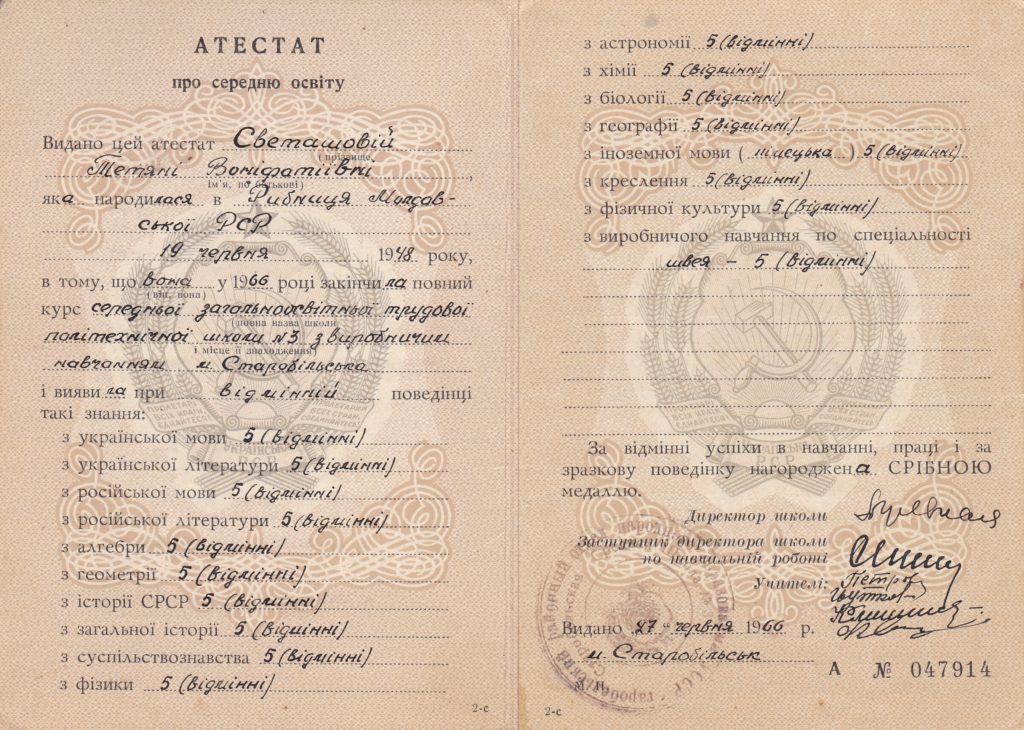 АТЕСТАТ
про середню освіту
Видано цей атестат Светашовій
(прізвище,
Тетяні Воніфатіївні,
ім'я, по батькові)
яка народилася в Рибниця Молдав-
ської РСР
19 червня 1948 року,
в тому, що вона у 1966 році закінчила повний
(він, вона)
курс середньої загальноосвітньої трудової
(повна назва школи
політехнічної школи №3 з виробничим
і місце її знаходження)
навчанням м. Старобільська
і виявила при відмінній поведінці
такі знання:
з української мови 5 (відмінні)
з української літератури 5 (відмінні)
з російської мови 5 (відмінні)
з російської літератури 5 (відмінні)
з алгебри 5 (відмінні)
з геометрії 5 (відмінні)
з історії СРСР 5 (відмінні)
з загальної історії 5 (відмінні)
з суспільствознавства 5 (відмінні)
з фізики 5 (відмінні)
2-с
з астрономії 5 (відмінні)
з хімії 5 (відмінні)
з біології 5 (відмінні)
з географії 5 (відмінні)
з іноземної мови (німецька) 5 (відмінні)
з креслення 5 (відмінні)
з фізичної культури 5 (відмінні)
з виробничого навчання по спеціальності
швея – 5 (відмінні)
За відмінні успіхи в навчанні, праці і за
зразкову поведінку нагороджена СРІБНОЮ
медаллю.
Директор школи
Заступник директора школи
по навчальній роботі
Учителі:
Видано "27" червня 1966 р.
м. Старобільськ
А № 047914
М. П.
2-с